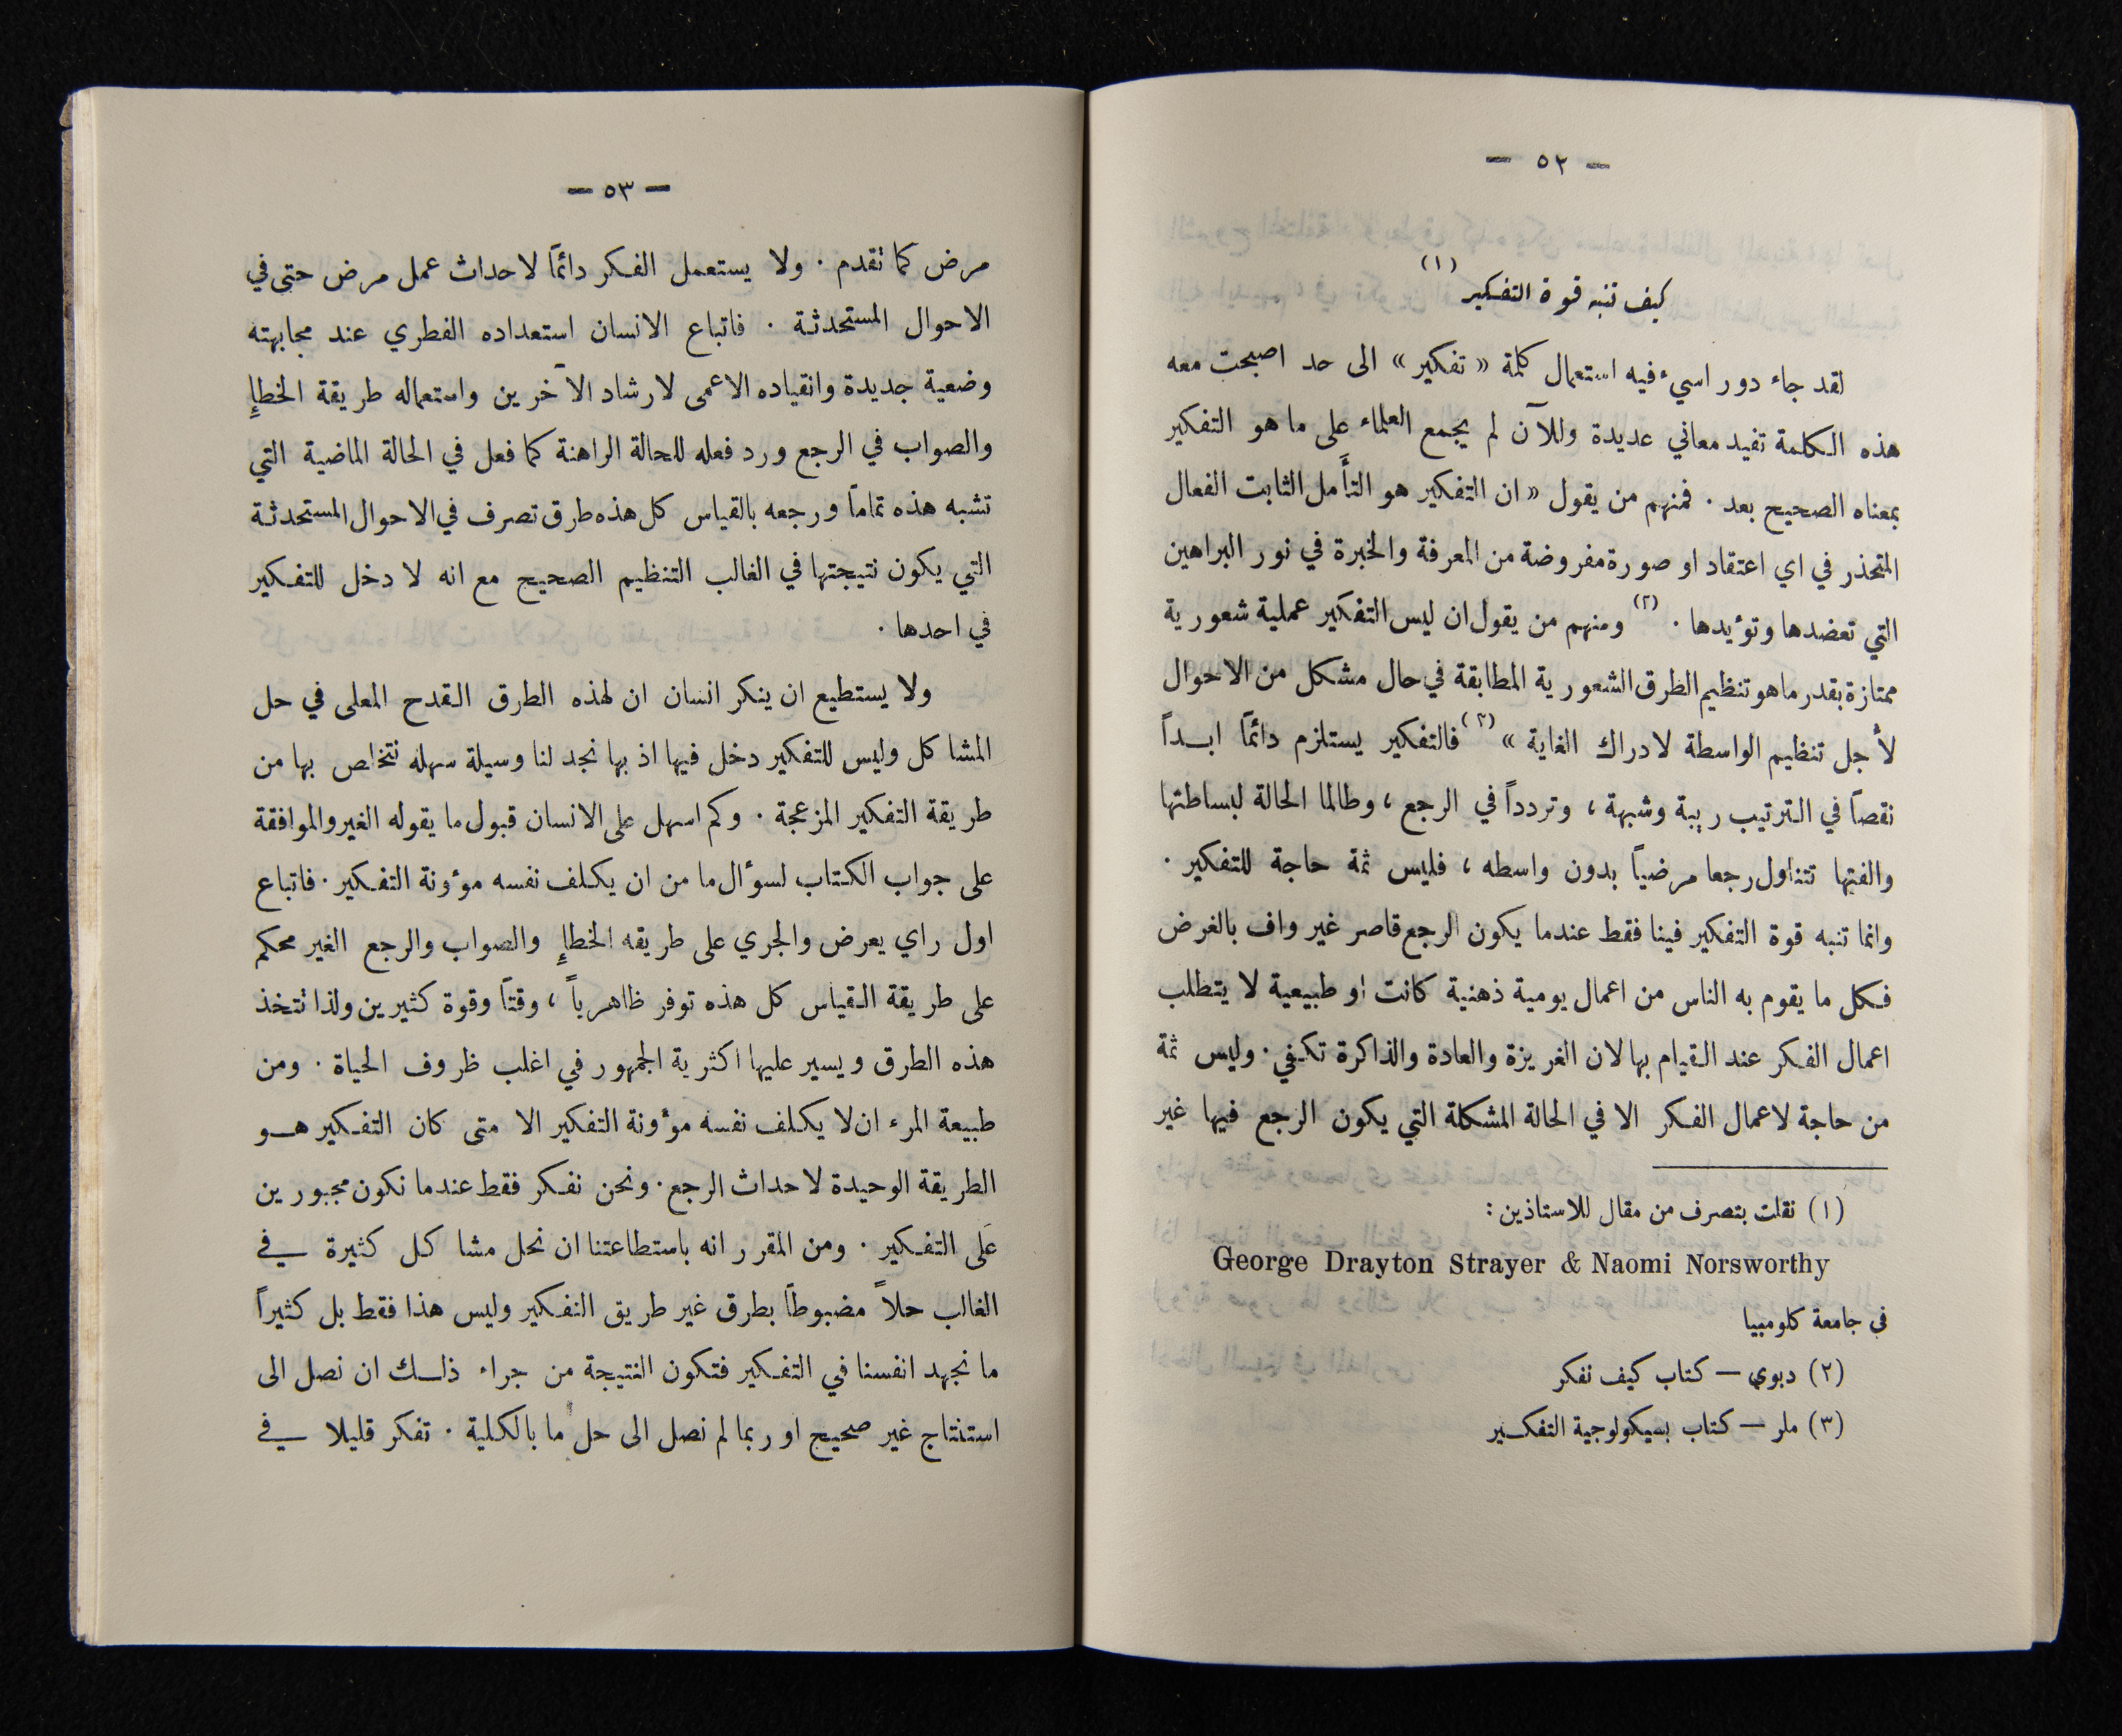 — ٥٢ —
كيف تنبه قوة التفكير (١)
لقد جاء دور اسيء فيه استعمال كلمة « تفكير » الى حد اصبحت معه
هذه الكلمة تفيد معاني عديدة وللآن لم يجمع العلماء على ما هو التفكير
بمعناه الصحيح بعد . فمنهم من يقول « ان التفكير هو التأَمل الثابت الفعال
المتحذر في اي اعتقاد او صورة مفروضة من المعرفة والخبرة في نور البراهين
التي تعضدها وتؤيدها . (٢) ومنهم من يقول ان ليس التفكير عملية شعورية
ممتازة بقدر ما هو تنظيم الطرق الشعورية المطابقة في حال مشكل من الاحوال
لأجل تنظيم الواسطة لادراك الغاية » (٣) فالتفكير يستلزم دائمًا ابــداً
نقصاً في الترتيب ريبة وشبهة ، وترددًا في الرجع ، وطالما الحالة لبساطتها
والفتها تتناول رجعا مرضياً بدون واسطه ، فليس ثمة حاجة للتفكير .
وانما تنبه قوة التفكير فينا فقط عندما يكون الرجع قاصر غير واف بالغرض
فكل ما يقوم به الناس من اعمال يومية ذهنية كانت او طبيعية لا يتطلب
اعمال الفكر عند القيام بها لان الغريزة والعادة والذاكرة تكفي . وليس ثمة
من حاجة لاعمال الفكر الا في الحالة المشكلة التي يكون الرجع فيها غير
(١) نقلت بتصرف من مقال للاستاذين :
George Drayton Strayer & Naomi Norsworthy
في جامعة كلومبيا
(٢) ديوي — كتاب كيف نفكر
(٣) ملر — كتاب بسيكولوجية التفكـير
— ٥٣ —
مرض كما تقدم . ولا يستعمل الفكر دائمًا لاحداث عمل مرض حتى في
الاحوال المستحدثة . فاتباع الانسان استعداده الفطري عند مجابهته
وضعية جديدة وانقياده الاعمى لارشاد الآخرين واستعماله طريقة الخطإِ
والصواب في الرجع ورد فعله للحالة الراهنة كما فعل في الحالة الماضية التي
تشبه هذه تماماً ورجعه بالقياس كل هذه طرق تصرف في الاحوال المستحدثة
التي يكون نتيجتها في الغالب التنظيم الصحيح مع انه لا دخل للتفكير
في احدها .
ولا يستطيع ان ينكر انسان ان لهذه الطرق القدح المعلى في حل
المشاكل وليس للتفكير دخل فيها اذ بها نجد لنا وسيلة سهله نتخلص بها من
طريقة التفكير المزعجة . وكم اسهل على الانسان قبول ما يقوله الغير والموافقة
على جواب الكتاب لسؤال ما من ان يكلف نفسه مؤونة التفكير . فاتباع
اول راي يعرض والجري على طريقه الخطإِ والصواب والرجع الغير محكم
على طريقة القياس كل هذه توفر ظاهرياً ، وقتاً وقوة كثيرين ولذا نتخذ
هذه الطرق ويسير عليها اكثرية الجمهور في اغلب ظروف الحياة . ومن
طبيعة المرء ان لا يكلف نفسه مؤونة التفكير الا متى كان التفكير هــو
الطريقة الوحيدة لاحداث الرجع . ونحن نفكر فقط عندما نكون مجبورين
عَلى التفكير . ومن المقرر انه باستطاعتنا ان نحل مشاكل كثيرة في
الغالب حلاً مضبوطاً بطرق غير طريق التفكير وليس هذا فقط بل كثيراً
ما نجهد انفسنا في التفكير فتكون النتيجة من جراء ذلــك ان نصل الى
استنتاج غير صحيح او ربما لم نصل الى حل ما بالكلية . تفكر قليلا في